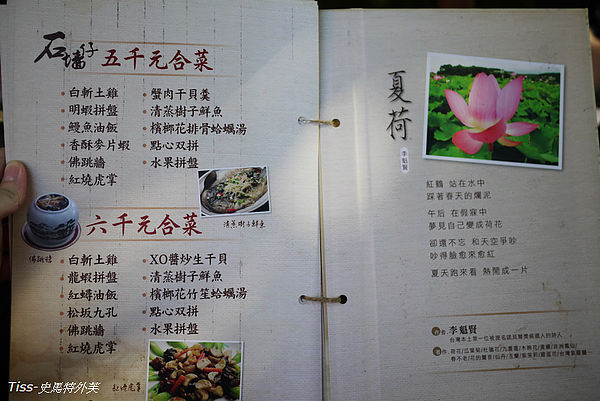 石墻仔 五千元合菜
白斬土雞
明蝦拼盤
鰻魚油飯
香酥麥片蝦
佛跳牆
紅燒虎掌
蟹肉干貝羹
清蒸樹子鮮魚
檳榔花排骨蛤蠣湯
點心双拼
水果拼盤
清蒸樹子鮮魚
佛跳牆
六千元合菜
白斬土雞
龍蝦拼盤
紅蟳油飯
松坂九孔
佛跳牆
紅燒虎掌
XO醬炒生干貝
清蒸樹子鮮魚
檳榔花竹笙蛤蠣湯
點心双拼
水果拼盤
紅燒虎掌
夏荷
李魁賢
紅鶴 站在水中
踩著春天的爛泥
午后 在假寐中
夢見自己變成荷花
卻還不忘 和天空爭吵
吵得臉愈來愈紅
夏天跑來看 熱鬧成一片
作者 李魁賢
台灣本土第一位被提名諾貝爾獎候選人的詩人
Tiss-史馬特外芙